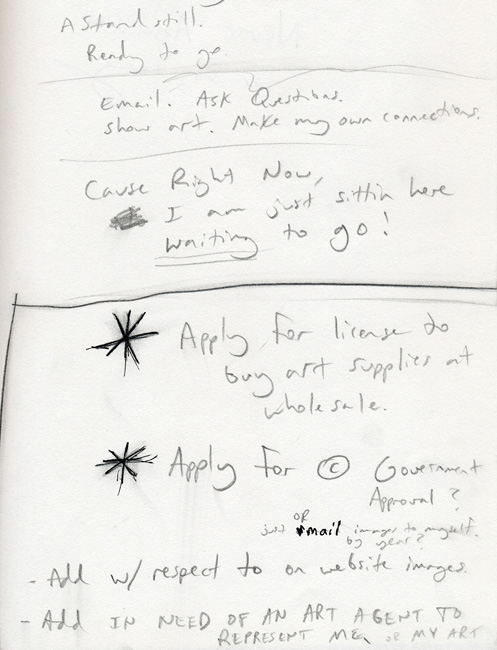 A Stand still.
Ready to go.
Email. Ask Questions.
show art. Make my own connections.
Cause Right Now,
I am just sittin here
waiting to go!
Apply for license to
buy art supplies at
wholesale.
Apply for © Government
Approval?
or
just mail images to myself.
by year?
- Add w/ respect to on website images.
- Add IN NEED OF AN ART AGENT TO
REPRESENT ME, OR MY ART